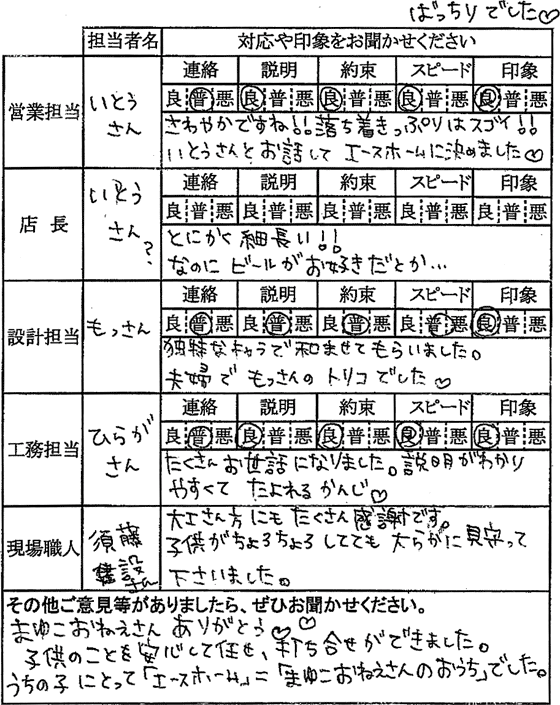 ばっちりでした♡
担当者名 対応や印象をお聞かせください
営業担当 いとうさん
連絡 説明 約束 スピード 印象
良 普 悪 良 普 悪 良 普 悪 良 普 悪 良 普 悪
さわやかですね!!落ち着きっぷりはスゴイ!!
いとうさんとお話して エースホームに決めました♡
店長 いとうさん?
連絡 説明 約束 スピード 印象
良 普 悪 良 普 悪 良 普 悪 良 普 悪 良 普 悪
とにかく 細長い!!
なのに ビールが お好きだとか…
設計担当 もっさん
連絡 説明 約束 スピード 印象
良 普 悪 良 普 悪 良 普 悪 良 普 悪 良 普 悪
独特なキャラで 和ませて もらいました。
夫婦で もっさんの トリコでした♡
工務担当 ひらがさん
連絡 説明 約束 スピード 印象
良 普 悪 良 普 悪 良 普 悪 良 普 悪 良 普 悪
たくさん お世話になりました。説明がわかり
やすくて たよれる かんじ♡
現場職人 須藤建設さん
大工さん方にも たくさん 感謝です。
子供がちょろちょろしてても 大らかに 見守って
下さいました。
その他ご意見等がありましたら、ぜひお聞かせください。
まゆこおねえさん ありがとう♡♡
子供のことを 安心して任せ、打ち合せができました。
うちの子にとって「エースホーム」=「まゆこおねえさんのおうち」でした。